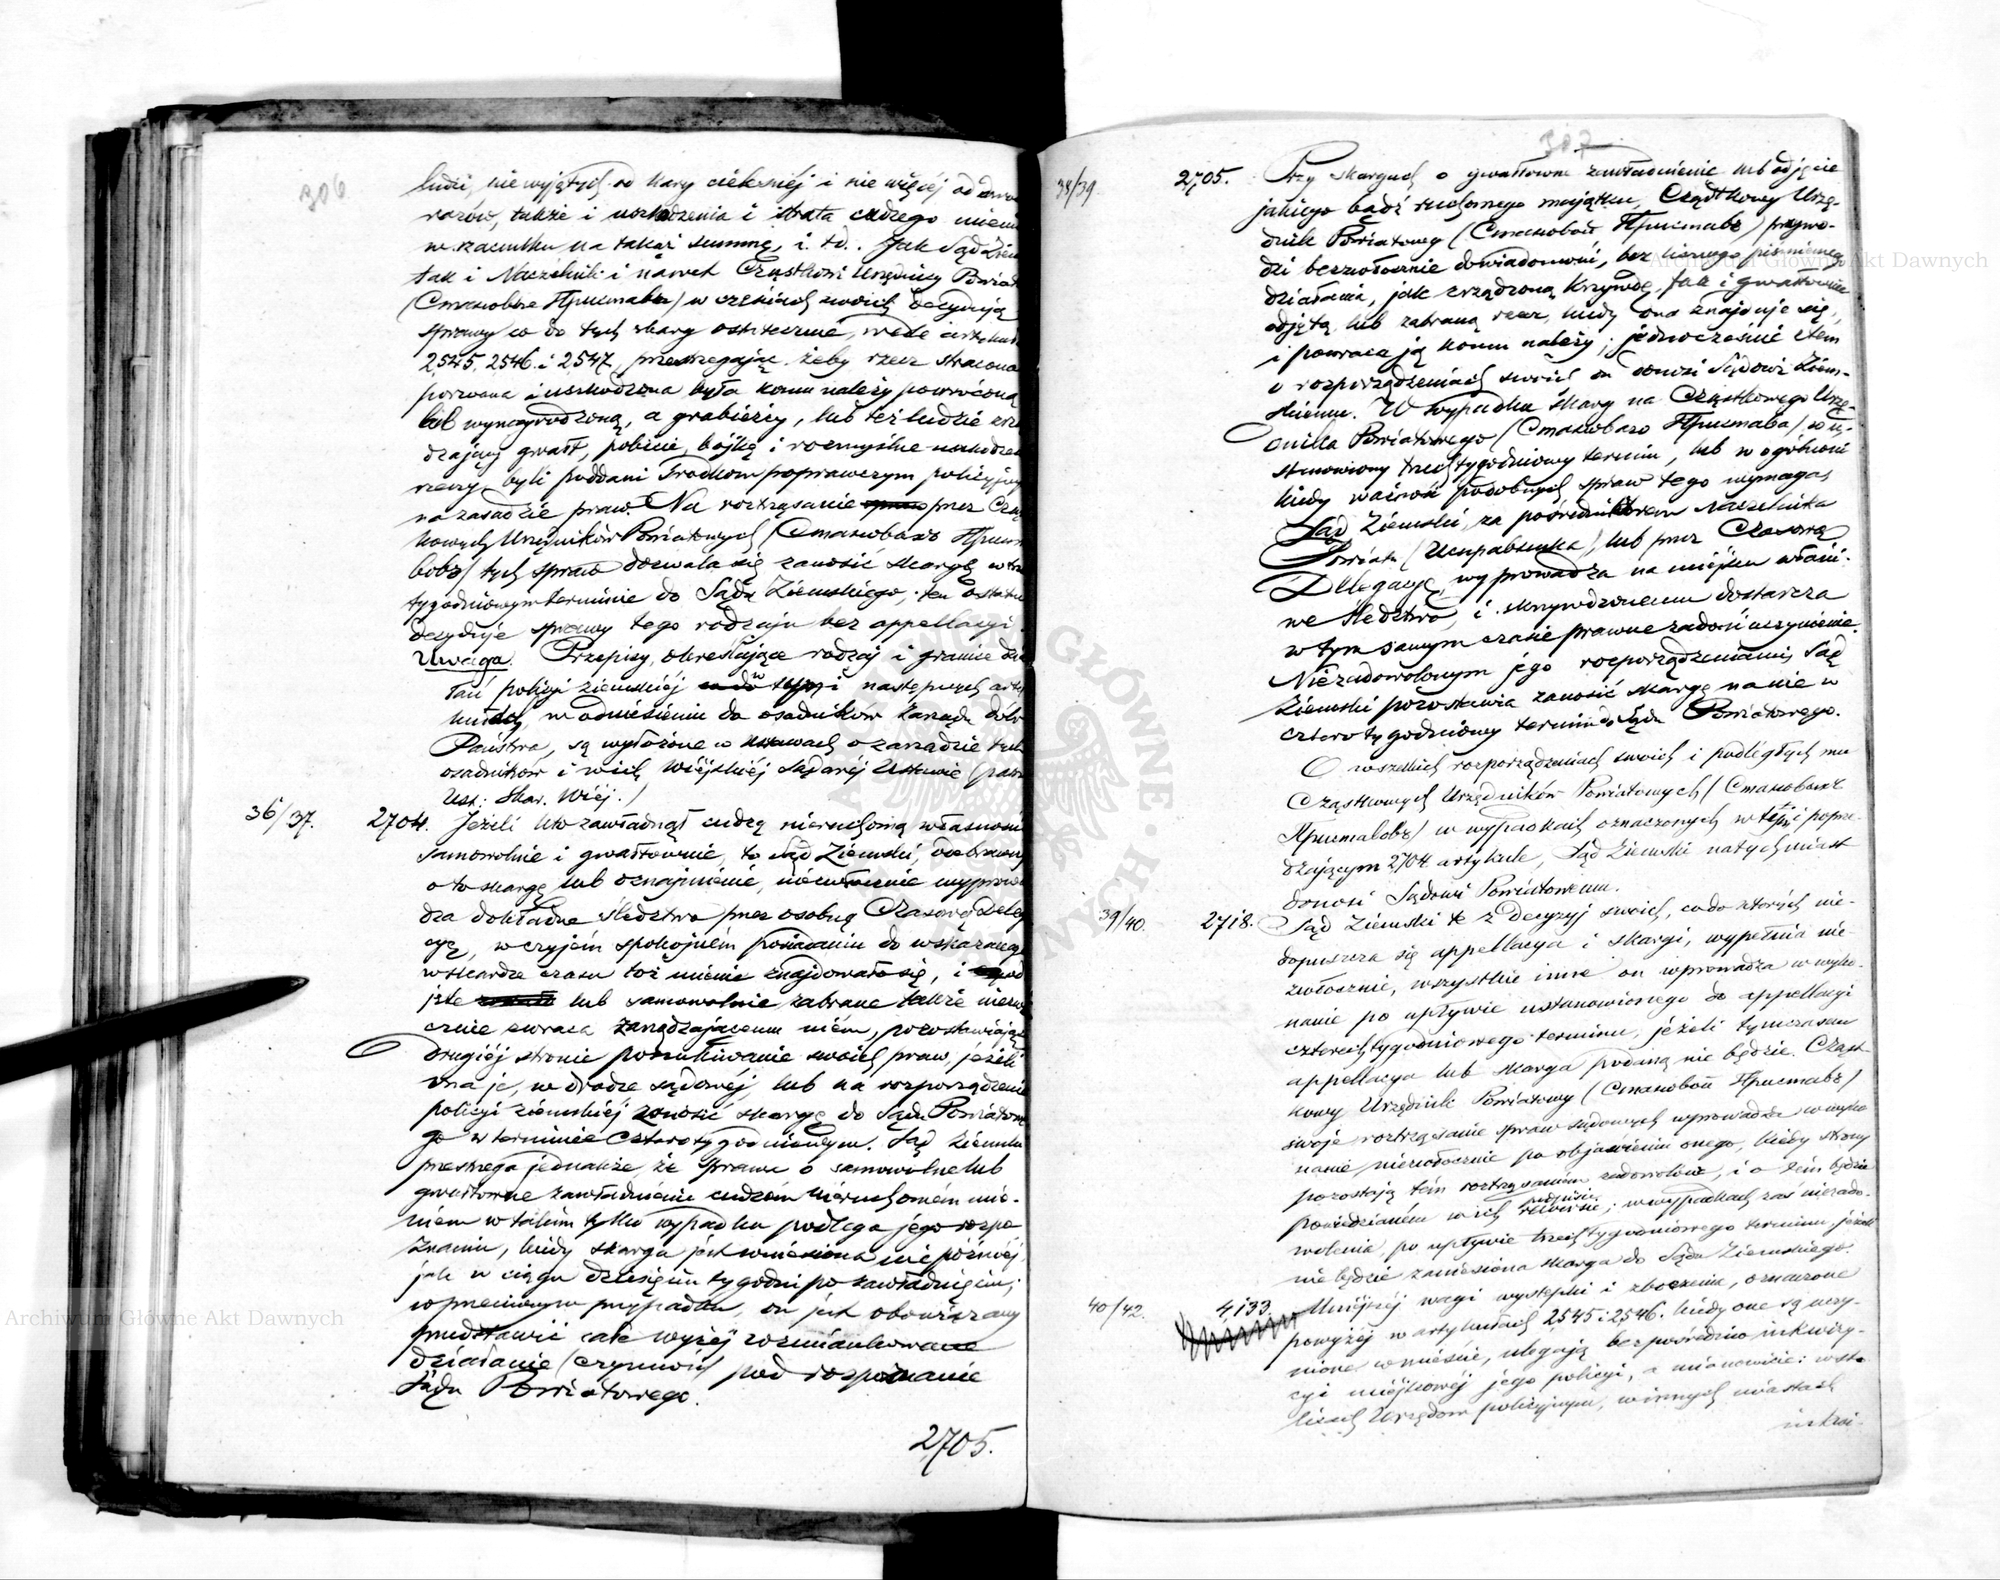 306
ludzi, nie wyjętych od kary cielesnéj i nie więcéj od
razów, także i uszkodzenia i strata cudzego mienia
w szacunku na takąż summę, i. t.d.. Jak Sąd Ziem
tak i Naczelnik i nawet Cząstkowi Urzędnicy Powiat
(Становые Пристава) w częściach swoich decydują
sprawy co do tych skarg ostatecznie, wedle artykuł
2545. 2546. i 2547, przestrzegając żeby rzecz stracona
porwana i uszkodzona była komu należy powróconą
lub wynagrodzoną, a grabieżcy, lub też ludzie
dzający gwałt, pobicie, bójkę i rozmyślne uszkodzen
rzeczy byli poddani środkom poprawczym policyjnym
na zasadzie praw. Na roztrząsanie przez Czą
kowych Urzędników Powiatowych (Становыхъ Прист
вовъ) tych spraw dozwala się zanosić skargę w trz
tygodniowym terminie do Sądu Ziemskiego; ten ostatni
decyduje sprawy tego rodzaju bez appellacyi.
Uwaga. Przepisy, określające rodzaj i granice dzia
łań policyi ziemskiéj w téj i następnych arty
kułach, w odniesieniu do osadników Zarządu dóbr
Państwa, są wyłożone w Ustawach o zarządzie tych
osadników i w ich Wiéjskiéj Sądowéj Ustawie (patrz
Ust: Skar. Wiéj.)
36/37. 2704. Jeżeli kto zawładnął cudzą nieruchomą własnością
samowolnie i gwałtownie, to Sąd Ziemski, odebrawszy
o to skargę lub oznajmienie, niezwłocznie wyprowa
dza dokładne śledztwo przez osobną Czasową Deleg
cyę, w czyjém spokojném posiadaniu do wskazanego
w skardze czasu toż mienie znajdowało się, i
jęte lub samowolnie zabrane także niezwł
cznie zwraca zarządzającemu niém, pozostawiając
drugiéj stronie poszukiwanie swoich praw, jeżeli
ma je, w drodze sądowéj, lub na rozporządzenie
policyi ziemskiéj zanosić skargę do Sądu Powiatowe
go w terminie czterotygodniowym. Sąd Ziemski
przestrzega jednakże, że sprawa o samowolne lub
gwałtowne zawładnienie cudzém nieruchomém mie-
niem w takim tylko wypadku podlega jego rozpo
znaniu, kiedy skarga jest wniesiona nie późniéj,
jak w ciągu dziesięciu tygodni po zawładnięciu;
w przeciwnym przypadku, on jest obowiązany
przedstawić całe wyżéj rozmiankowane
działanie (czynność) pod rozpoznanie
Sądu Powiatowego.
2705.
307
38/39. 2705. Przy skargach o gwałtowne zawładnienie lub odjęcie
jakiego bądź ruchomego majątku, Cząstkowy Urzę-
dnik Powiatowy (Становой Приставъ) przywo-
dzi bezzwłocznie do wiadomości, bez żadnego piśmiennego
działania, jak zrządzoną krzywdę, tak i gwałtownie
odjętą lub zabraną rzecz, kiedy ona znajduje się,
i powraca ją komu należy; jednocześnie z tem
o rozporządzeniach swoich on donosi Sądowi Ziem-
skiemu. W wypadku skargi na Cząstkowego Urzę-
dnika Powiatowego (Становаго Пристава) w u-
stanowiony trzechtygodniowy termin, lub w ogólności
kiedy ważność podobnych spraw tego wymaga,
Sąd Ziemski, za pośrednictwem Naczelnika
Powiatu (Исправника), lub przez Czasową
Delegacyę, wyprowadza na miéjscu właści-
we śledztwo, i skrzywdzonemu dostarcza
w tym samym czasie prawne zadość uczynienie.
Niezadowolonym jego rozporządzeniami, Sąd
Ziemski pozostawia zanosić skargę na nie w
czterotygodniowy termin do Sądu Powiatowego.
O wszelkich rozporządzeniach swoich i podległych mu
Cząstkowych Urzędników Powiatowych (Становыхъ
Приставовъ) w wypadkach oznaczonych w téj i poprze-
dzającym 2704 artykule, Sąd Ziemski natychmiast
donosi Sądowi Powiatowemu.
39/40. 2718. Sąd Ziemski te z decyzyj swoich, co do których nie-
dopuszcza się appellacya i skargi, wypełnia nie-
zwłocznie, wszystkie inne on wprowadza w wyko-
nanie po upływie ustanowionego do appellacyi
czterechtygodniowego terminu, jeżeli tymczasem
appellacya lub skarga podaną nie będzie. Cząst-
kowy Urzędnik Powiatowy (Становой Приставъ)
swoje roztrząsanie spraw sądowych wprowadza w wyko
nanie, niezwłocznie po objawieniu onego, kiedy strony
pozostają tém roztrząsaniem zadowolone, i o tém będzie
powiedzianém w ich ; w wypadkach zaś niezado-
wolenia, po upływie trzechtygodniowego terminu, jeżeli
nie będzie zaniesiona skarga do Sądu Ziemskiego.
40/42. 4133. Mniéjszéj wagi występki i zboczenia, oznaczone
powyżéj w artykułach 2545 i 2546. kiedy one są uczy-
nione w mieście, ulegają bezpośrednio inkwizy-
cyi miéjskowéj jego policyi, a mianowicie: w sto
licach Urzędom policyjnym, w innych miastach
inkwi-
Archiwum Główne Akt Dawnych
Archiwum Główne Akt Dawnych